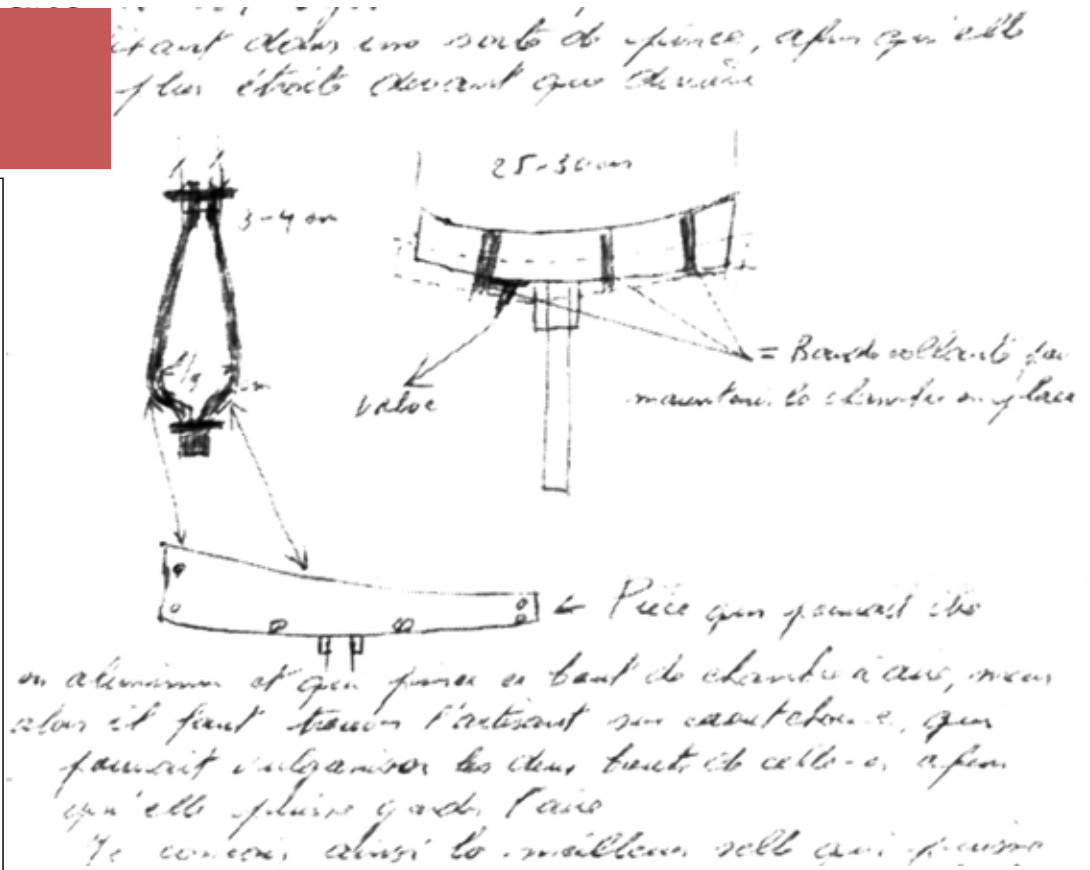 dans une sorte de pince, afin qu'elle
plus étroite devant que derrière
25-30 cm
3-4 cm
cm
valve
= Bande collante
maintenir la chambre en place
← Pièce qui pourrait être
en aluminium et qui pince le bout de chambre à aire, mais
alors il faut trouver l'artisant en caoutchouc, qui
pourrait vulganiser les deux bouts de celle-ci afin
qu'elle puisse garder l'aire
Je conçois ainsi la meilleure selle qui puisse